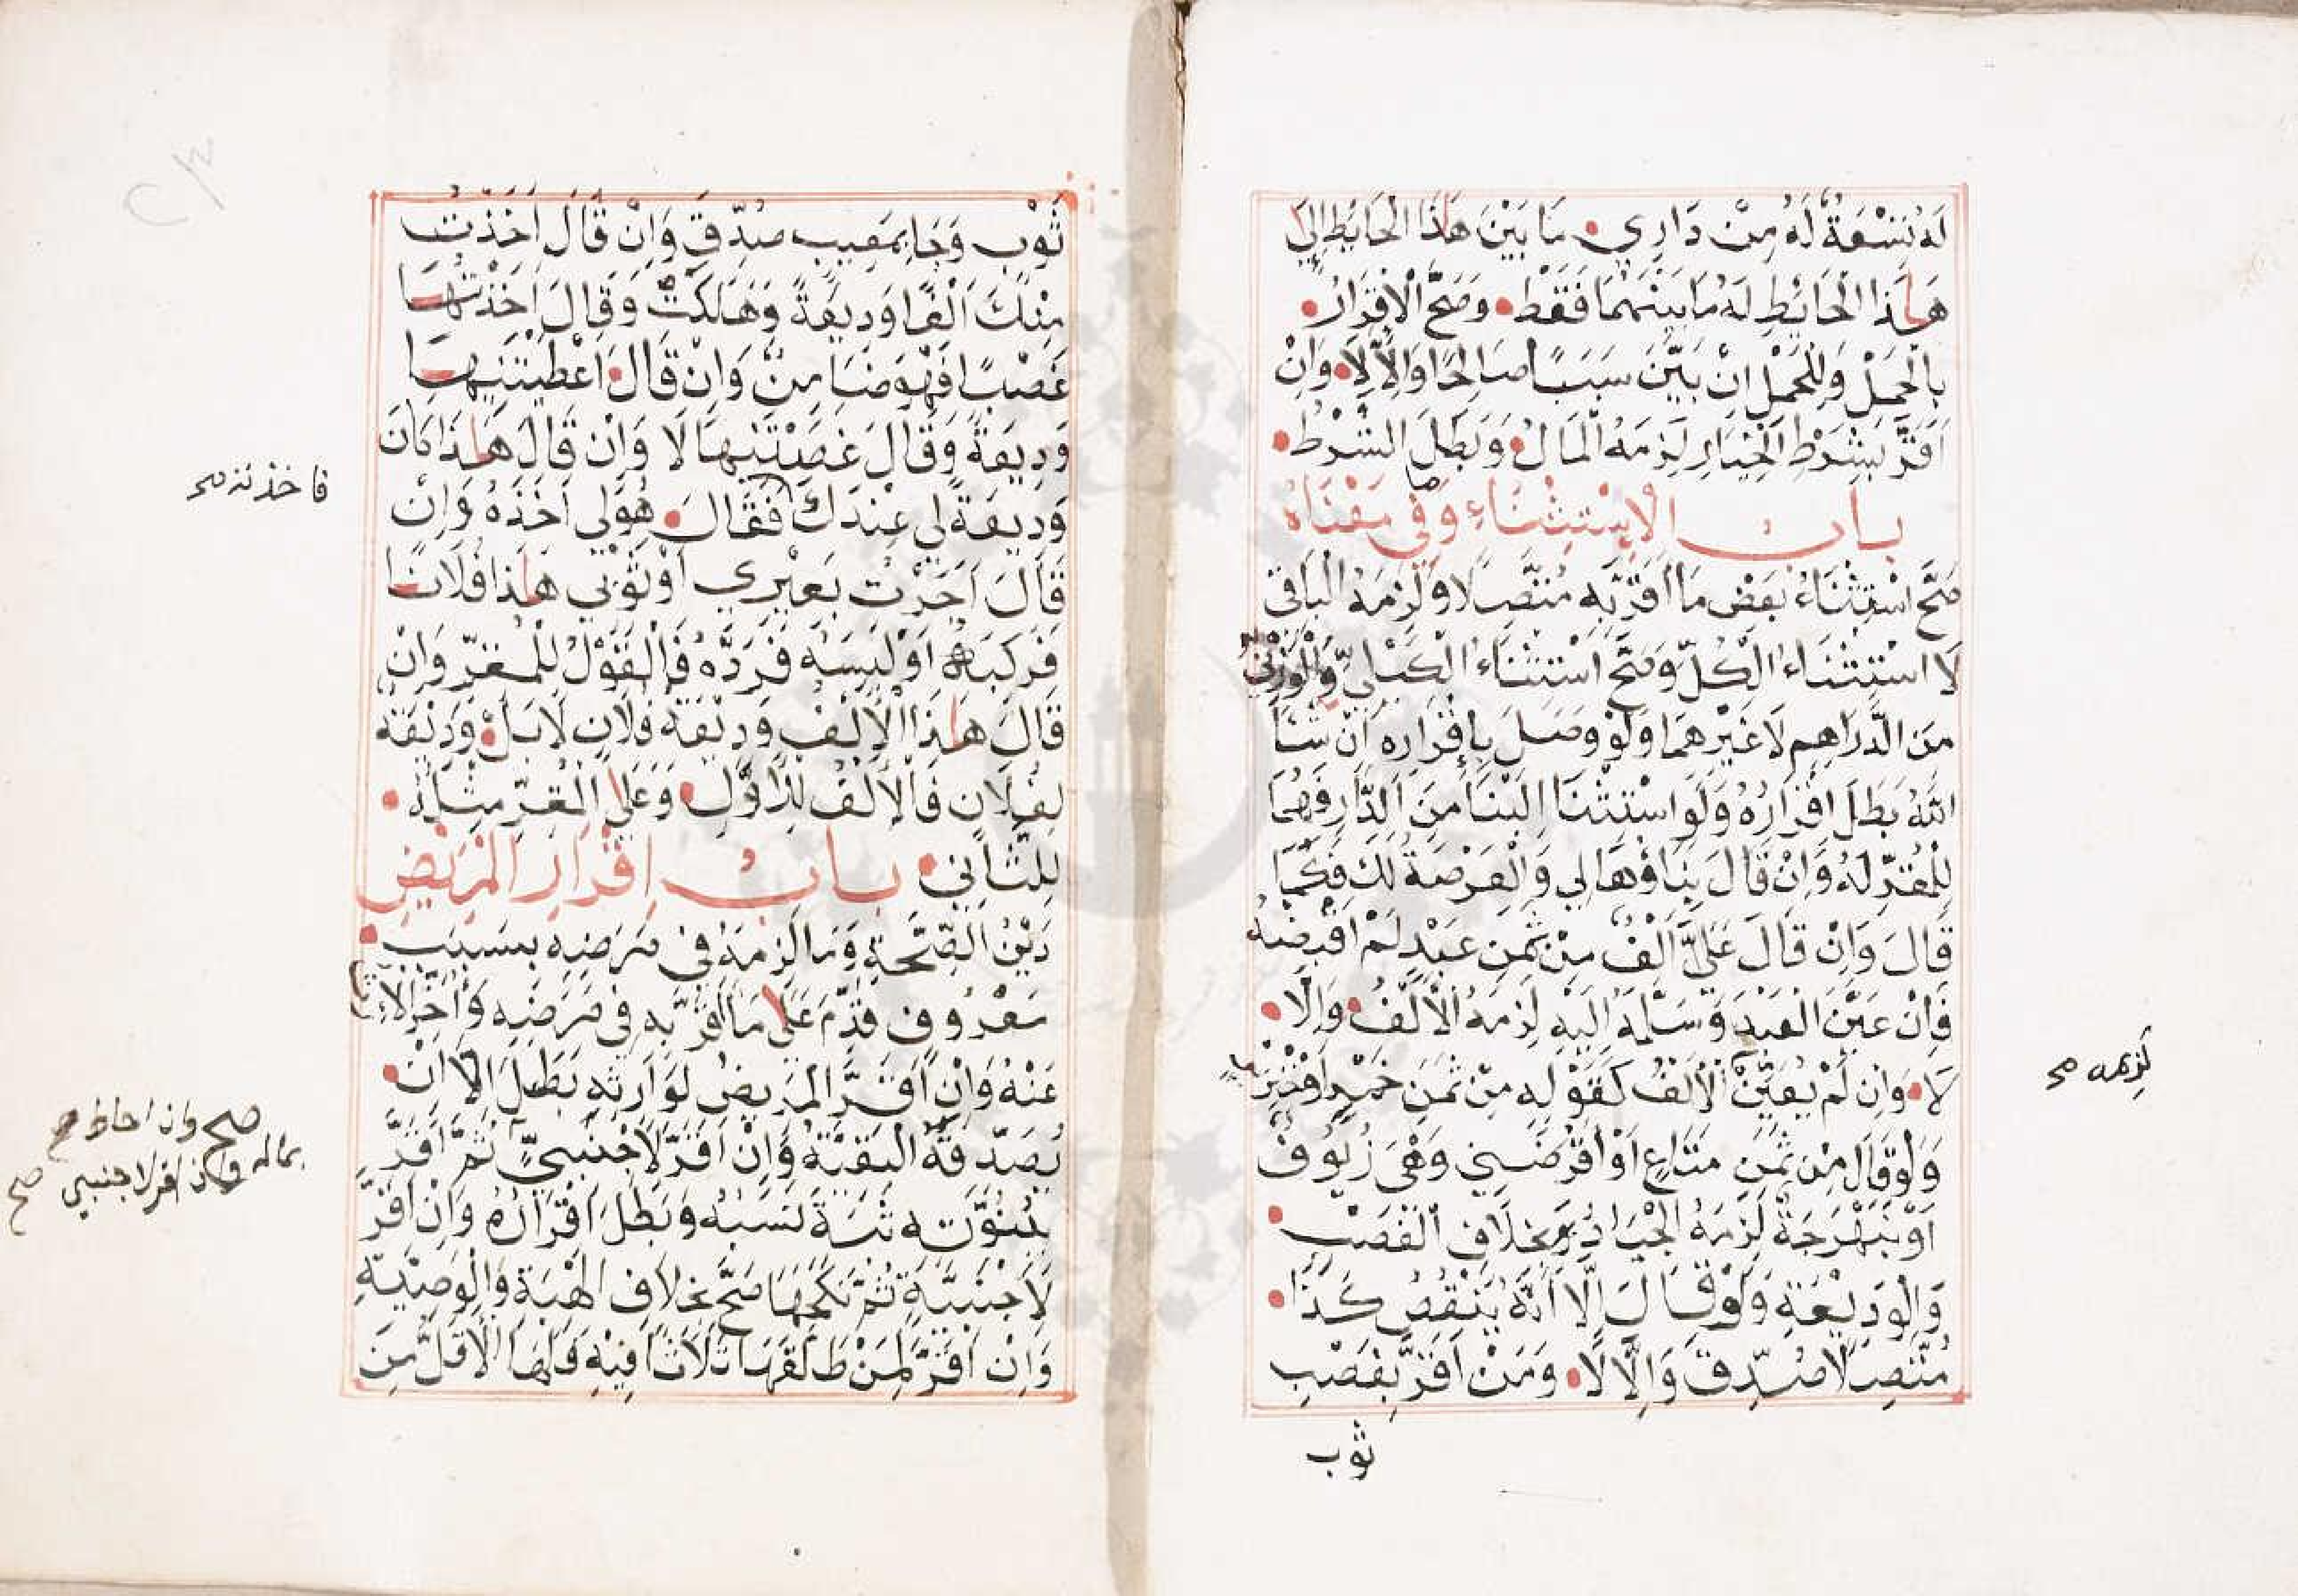 لَهُ تِسْعَةٌ لَهُ مِنْ دَارِي مَا بَيْنَ هٰذَا الْحَايِطِ إِلَىٰ
هٰذَا الْحَايْطِ لَهُ مَا بَيْنَهُمَا فَقَطْ وَصَحَّ الْاِقْرَارُ
بِالْحَمْلْ وَلِلْحَمْلِ اِنْ بَيَّنَ سَبَبًا صَالِحًا وَاِلَّا لَا وَاِنْ
اَقَرَّ بِشَرْطِ الْخِيَارِ لَزِمَهُ الْمَالُ وَبَطَلَ الشَّرْطُ
بابُ الْاِسْتِثْنَاءِ وَمَا فِي مَعْنَاهُ
صَحَّ اسْتِثْنَاءُ بَعْضِ مَا اَقَرَّ بِهِ مُتَّصِلًا وَلَزِمَهُ الْبَاقِي
لَا اسْتِثْنَاءُ الْكُلِّ وَصَحَّ اسْتِثْنَاءُ الْكَيْلِيِّ وَالْوَزْنِيِّ
مِنَ الدَّرَاهِمِ لَا غَيْرِهِمَا وَلَوْ وَصَلَ بِإِقْرَارِهِ اِنْ شَا
اللهُ بَطَلَ اِقْرَارُهُ وَلَوِ اسْتَثْنَا الْبِنَا مِنَ الدَّارِ فَهُمَا
لِلْمُقَرِّ لَهُ وَاِنْ قَالَ بِنَاؤُهَا لِي وَالْعَرْصَةُ لَكَ فَكَمَا
قَالَ وَاِنْ قَالَ عَلَيَّ اَلْفٌ مِنْ ثَمَنِ عَبْدٍ لَمْ اَقْبِضْهُ
فَاِنْ عَيَّنَ الْعَبْدَ وَسَلَّمَهُ اِلَيْهِ لَزِمَهُ الْاَلْفُ وَاِلَّا
لَا وَاِن لَمْ يُعَيِّنْ الْاَلْفُ كَقَوْلِهِ مِنْ ثَمَنِ خَمْرٍ اَوْ خِنْزِيرٍ
لزمه صح
وَلَوْ قَالَ مِنْ ثَمَنِ مَتَاعٍ اَوْ اَقْرَضَنِي وَهْيَ زُيُوفٌ
اَوْ نَبَهْرَجَةٌ لَزِمَهُ الْجِيَادُ بِخِلَافِ الْغَصْبِ
وَالْوَدِيْعَةِ وَلَوْ قَالَ اِلَّا اَنَّهُ يَنْقُصُ كَذَا
مُتَّصِلًا صُدِّقَ وَاِلَّا لَا وَمَنْ اَقَرَّ بِغَصْبِ
ثوب
ثَوْبٍ وَجَا بِمَعِيبٍ صُدِّقَ وَاِنْ قَالَ اَخَذْتُ
مِنْكَ اَلْفًا وَدِيعَةً وَهَلَكَتْ وَقَالَ اَخَذْتَهَا
غَصْبًا فَهُوَ ضَامِنٌ وَاِنْ قَالَ اَعْطَيْتَنِيهَا
وَدِيعَةً وَقَالَ غَصَبْتَنِيهَا لَا وَاِنْ قَالَ هٰذَا كَانَ
وَدِيعَةً لِي عِنْدَكَ فَقَالَ هُوَ لِي اَخَذَهُ وَاِنْ
فاخذته صح
قَالَ اَجَرْتُ بَعِيْرِي اَوْ ثَوْبِي هٰذَا فُلَانًا
فَرَكِبَهُ اَوْ لَبِسَهُ فَرَدَّهُ فَالْقَوْلُ لِلْمُقِرِّ وَاِنْ
قَالَ هٰذَا الْاَلْفُ وَدِيْعَةُ فُلَانٍ لَا بَلْ وَدِيْعَةُ
لِفُلَانٍ فَالْاَلْفُ لِلْاَوَّلِ وَعَلَى الْمُقِرِّ مِثْلُهُ
لِلثَّانِي بابُ اِقْرَارِ الْمَرِيْضِ
دَيْنُ الصِّحَّةِ وَمَا لَزِمَهُ فِي مَرَضِهِ بِسَبَبٍ
مَعْرُوفٍ قُدِّمَ عَلَى مَا اَقَرَّ بِهِ فِي مَرَضِهِ وَاُخِّرَ الْاِرْثُ
عَنْهُ وَاِنْ اَقَرَّ الْمَرِيضُ لِوَارِثِهِ بَطَلَ اِلَّا اَنْ
يُصَدِّقَهُ الْبَقِيَّةُ وَاِنْ اَقَرَّ لِاَجْنَبِيٍّ ثُمَّ اَقَرَّ
صح وان احاط
بماله وان اقر لاجنبي صح
بِبُنُوَّتِهِ ثَبَتَ نَسَبُهُ وَبَطَلَ اِقْرَارُهُ وَاِنْ اَقَرَّ
لِاَجْنَبِيَّةٍ ثُمَّ نَكَحَهَا صَحَّ بِخِلَافِ الْهِبَةِ وَالْوَصِيَّةِ
وَاِنْ اَقَرَّ لِمَنْ طَلَّقَهَا ثَلَاثًا فِيْهِ فَلَهَا الْاَقَلُّ مِنَ